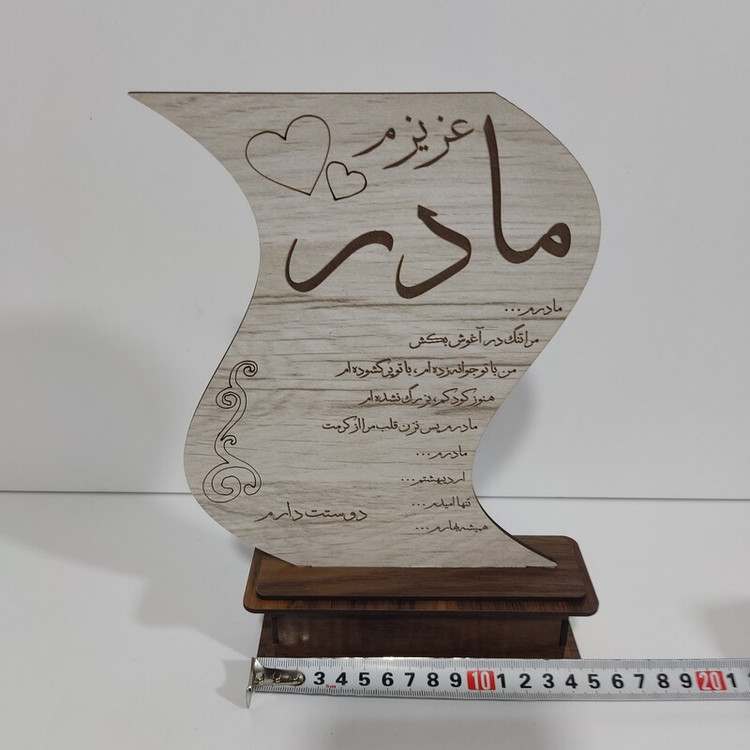 عزیزم
مادر
مادرم...
مرا تنگ در آغوش بکش
من با تو جوانه زده ام، با تو پر گشوده ام
هنوز کودکم، بزرگ نشده ام
مادرم پس نزن قلب مرا از کرمت
مادرم...
اردیبهشتم...
تنها امیدم...
همیشه بهارم...
دوستت دارم
3 4 5 6 7 8 9 10 1 2 3 4 5 6 7 8 9 20 1